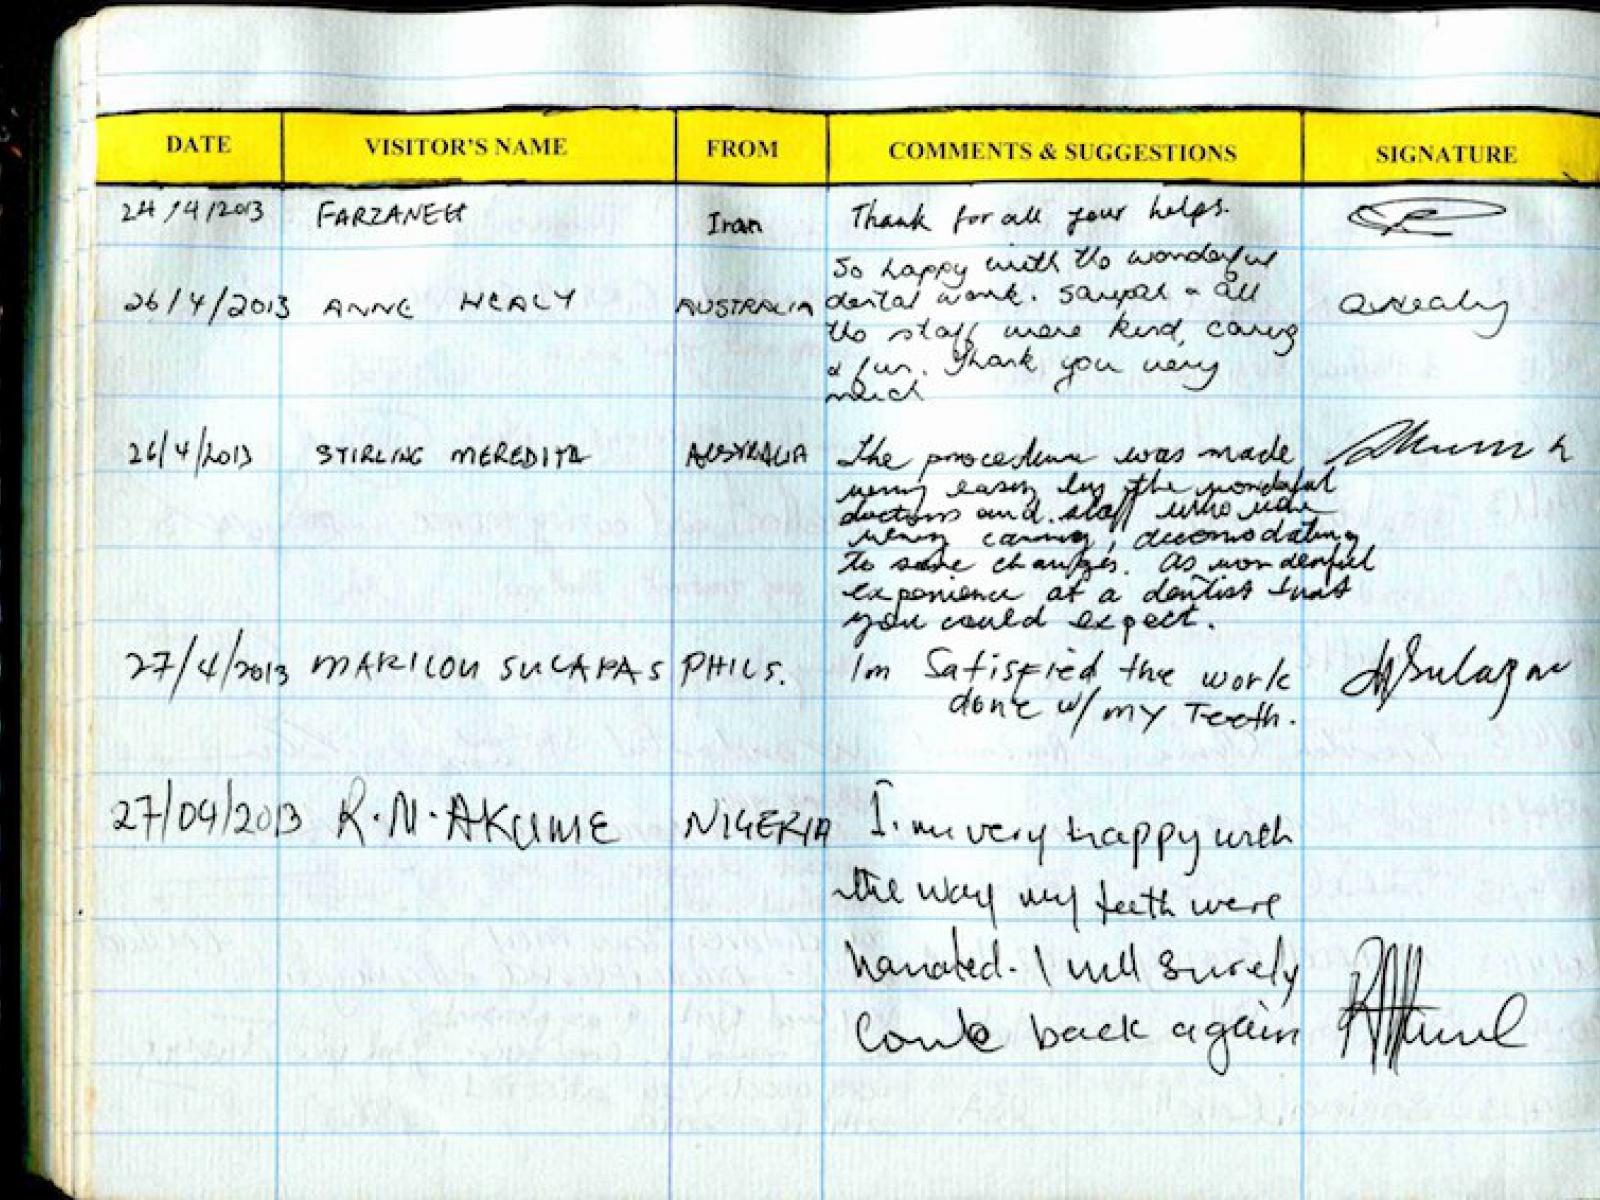 DATE VISITOR'S NAME FROM COMMENTS & SUGGESTIONS SIGNATURE
24/4/2013 FARZANEH Iran Thank for all your helps.
26/4/2013 ANNE HEALY AUSTRALIA So happy with the wonderful
dental work. & all
the staff were kind, caring
& fun. Thank you very
much
26/4/2013 STIRLING MEREDITH AUSTRALIA The procedure was made
very easy by the wonderful
doctors and staff who were
very caring, accomodating
to some changes. As wonderful
experience at a dentist that
you could expect.
27/4/2013 MARILOU SULAPAS PHILS. Im Satisfied the work
done w/ my Teeth.
27/04/2013 R.N. AKUME NIGERIA I. am very happy with
the way my teeth were
handled. I will surely
come back again